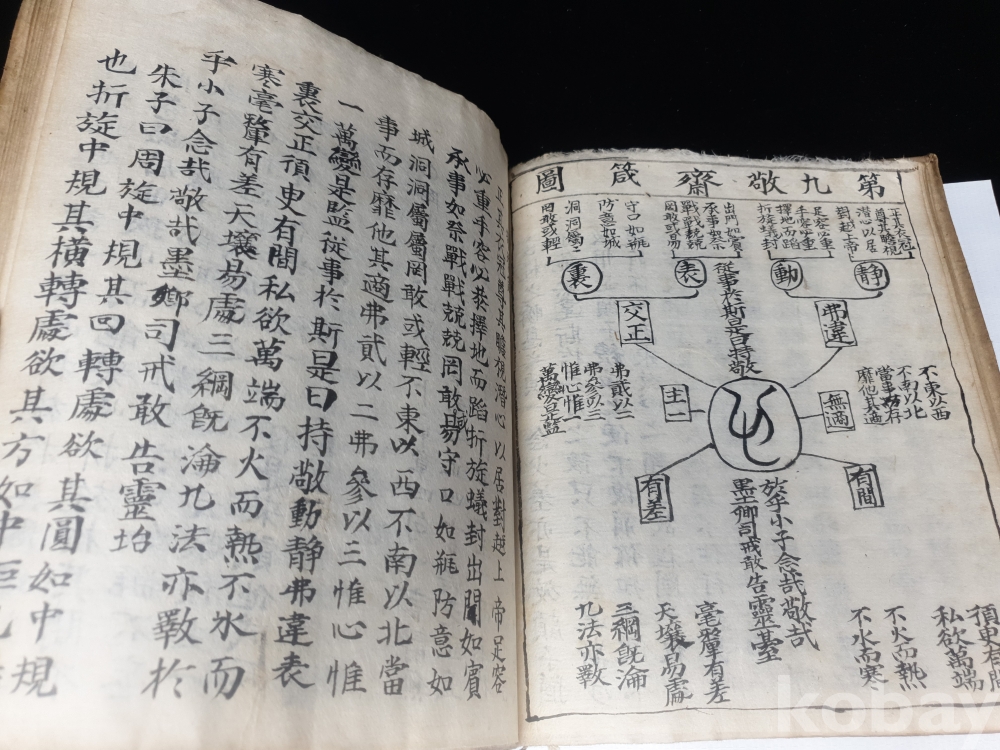 第九敬齋箴圖
正其衣冠
尊其瞻視
潛心以居
對越上帝
足容必重
手容必恭
擇地而蹈
折旋蟻封
出門如賓
承事如祭
戰戰兢兢
罔敢或易
守口如瓶
防意如城
洞洞屬〻
罔敢或輕
靜
動
表
裏
弗違
從事於斯是曰持敬
交正
不東以西
不南以北
當事而存
靡他其適
無適
心
主一
弗貳以二
弗參以三
惟心惟一
萬變是監
有間
有差
於乎小子念哉敬哉
墨卿司戒敢告靈臺
須臾有間
私欲萬端
不火而熱
不氷而寒
毫釐有差
天壤易處
三綱旣淪
九法亦斁
正其衣冠尊其瞻視潛心以居對越上帝足容
必重手容必恭擇地而蹈折旋蟻封出門如賓
承事如祭戰戰兢兢罔敢或易守口如瓶防意如
城洞洞屬屬罔敢或輕不東以西不南以北當
事而存靡他其適弗貳以二弗參以三惟心惟
一萬變是監從事於斯是曰持敬動靜弗違表
裏交正須臾有間私欲萬端不火而熱不氷而
寒毫釐有差天壤易處三綱旣淪九法亦斁於
乎小子念哉敬哉墨卿司戒敢告靈坮
朱子曰周旋中規其回轉處欲其圓如中規
也折旋中規其橫轉處欲其方如中矩
kobay